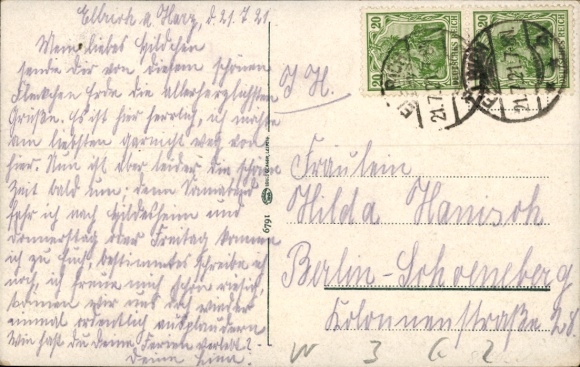 Ellrich a. Harz, d. 21.7.21
Mein liebes Hildchen
sende dir von diesem schönen
Fleckchen Erde die allerherzlichsten
Grüße. Es ist hier herrlich, ich möchte
am liebsten garnicht weg von
hier. Nun ist aber leider die schöne
Zeit bald um, denn Sonnabend
fahr ich nach Hildesheim und
Donnerstag oder Freitag komme
ich zu Euch, bestimmtes schreibe ich
noch, ich freue mich schon riesig,
können wir uns doch wieder
einmal ordentlich ausplaudern.
Wie hast du Deine Ferien verlebt?
Deine
6791
20
20
20
21.7.21.7-
21.7.21.7-
Fräulein
Hilda Hanisch
Berlin-Schoeneberg
Kolonnenstraße 28.
W 3 G 2